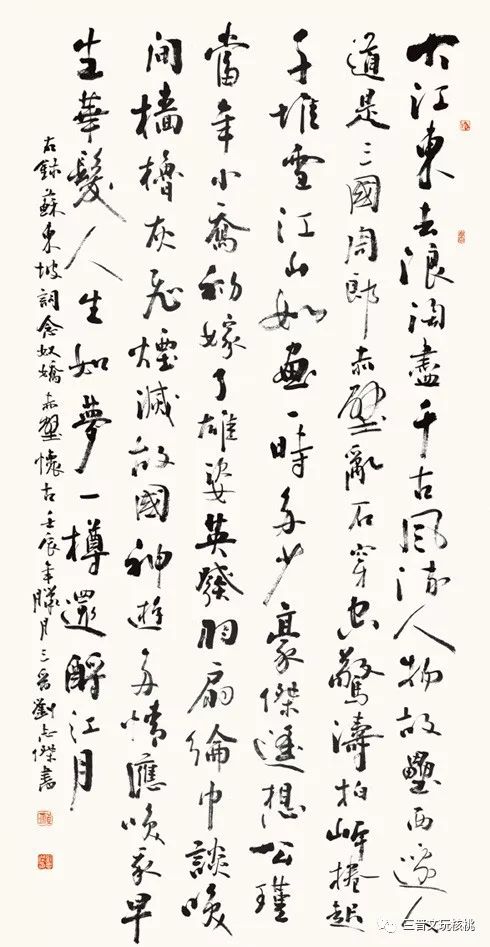 大江東去浪淘盡千古風流人物故壘西邊人
道是三國周郎赤壁亂石穿空驚濤拍岸捲起
千堆雪江山如畫一時多少豪傑遙想公瑾
當年小喬初嫁了雄姿英發羽扇綸巾談咲
間檣櫓灰飛煙滅故國神遊多情應咲我早
生華髮人生如夢一樽還酹江月
右錄蘇東坡詞念奴嬌赤壁懷古壬辰年臘月三晉劉志傑書
三晋文玩核桃